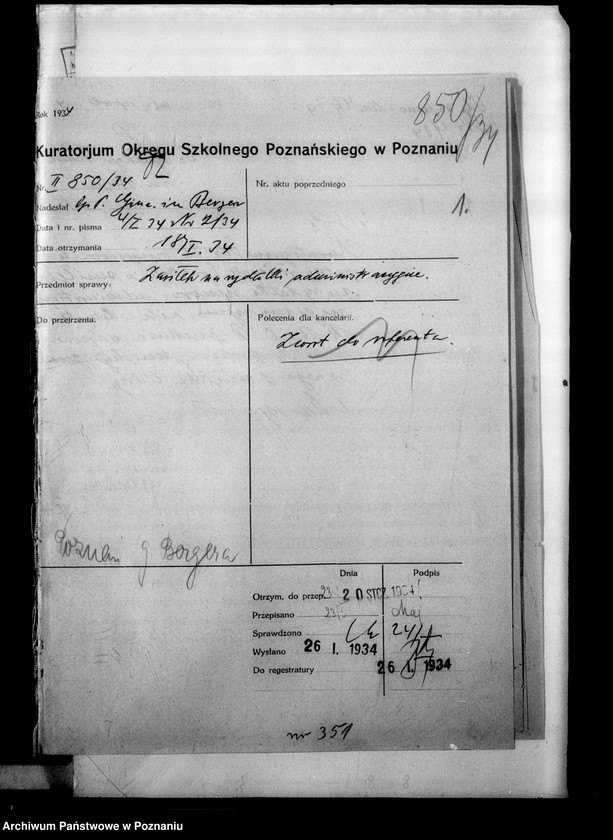 850/34
Rok 1934
Kuratorjum Okręgu Szkolnego Poznańskiego w Poznaniu
Nr. II 850/34
Nr. aktu poprzedniego
Nadesłał Gimn. im Berger
1.
Data i nr. pisma 4/I 34 Nr 12/34
Data otrzymania 18/I. 34
Przedmiot sprawy: Zasiłek na wydatki administracyjne.
Do przejrzenia.
Polecenia dla kancelarji.
Zwrot do referenta.
Poznań g Bergera
Dnia Podpis
Otrzym. do przep. 23 20 STCZ 1934
Przepisano 23/I
Sprawdzono 24/I
Wysłano 26 I. 1934
Do regestratury 26 I. 1934
nr 351
Archiwum Państwowe w Poznaniu